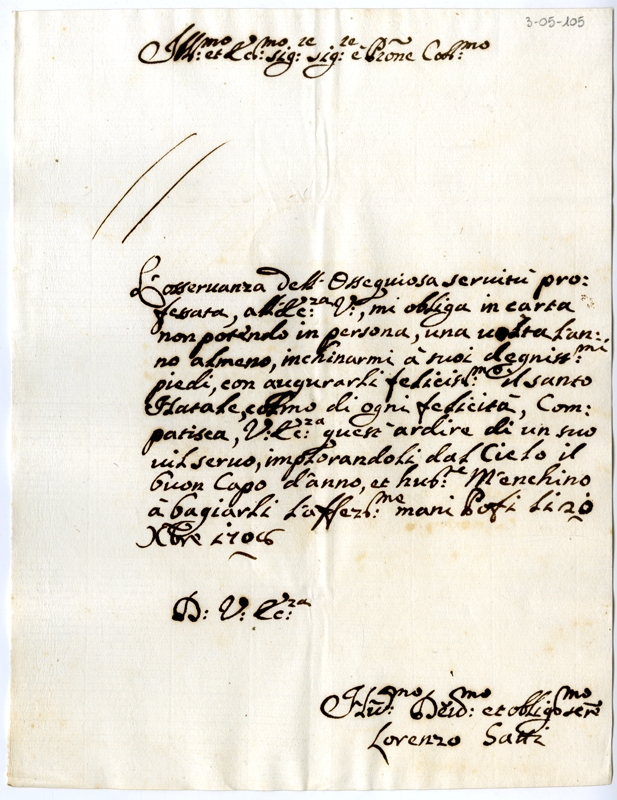 3-05-105
Ill:mo et Ecc:mo Sig:re Sig:re e Prõne Coll:mo
L'osservanza dell' Ossequiosa servitù pro:
fessata, all'Ecc:za V:, mi obliga in carta
non potendo in persona, una volta l'an:
no almeno, inchinarmi à suoi degniss:mi
piedi, con augurarli feliciss:mo il santo
Natale, colmo di ogni felicità, Com:
patisca, V: Ecc:za quest'ardire di un suo
vil servo, implorandoli dal Cielo il
buon Capo d'anno, et hum:te m'enchino
à bagiarli l'affez:me mani Pofi li 20
Xbre 1706
D: V: Ecc:za
Hũ:mo Deud:mo et obligmo serre
Lorenzo Satti